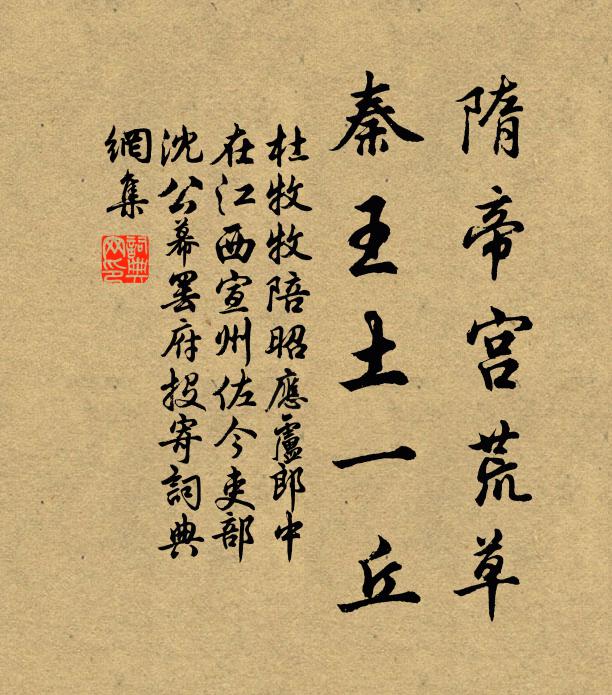 隋帝宫荒草
秦王土一丘
杜牧牧陪昭應盧郎中
在江西宣州佐今吏部
沈公幕罢府投寄詞典
網集
詞典網印